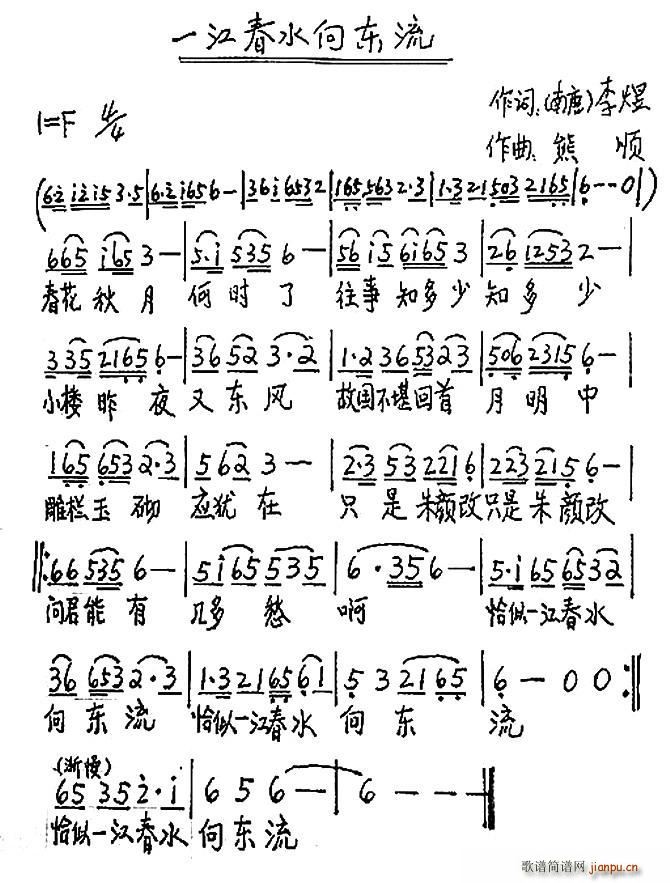 一江春水向东流
作词:(南唐)李煜
1=F 4/4
作曲:熊 顺
(6·2 i2i5 3·5|6·2 i656-|36i6532|165 563 2·3|1·3 21503 2165|6---0|)
665 i65 3-|5·i 535 6-|56 i5 6i65 3|26 1253 2-|
春花秋月 何时了 往事知多少 知多少
335 2165 6-|36 52 3·2|1·2 36 53 23|506 2315 6-|
小楼昨夜又东风 故国不堪回首 月明中
165 653 2·3|5 62 3-|2·3 53 2216|223 215 6-|
雕栏玉砌 应犹在 只是朱颜改只是朱颜改
‖:66 535 6-|5i65 535|6·35 6-|5·i 65 65 32|
问君能有 几多愁 啊 恰似一江春水
36 653 2·3|1·3 21 65 61|5 3 2165|6-00:‖
向东流 恰似一江春水 向东 流
(渐慢)
65 35 2·i|6 5 6-|6---‖
恰似一江春水 向东流
歌谱简谱网
jianpu.cn